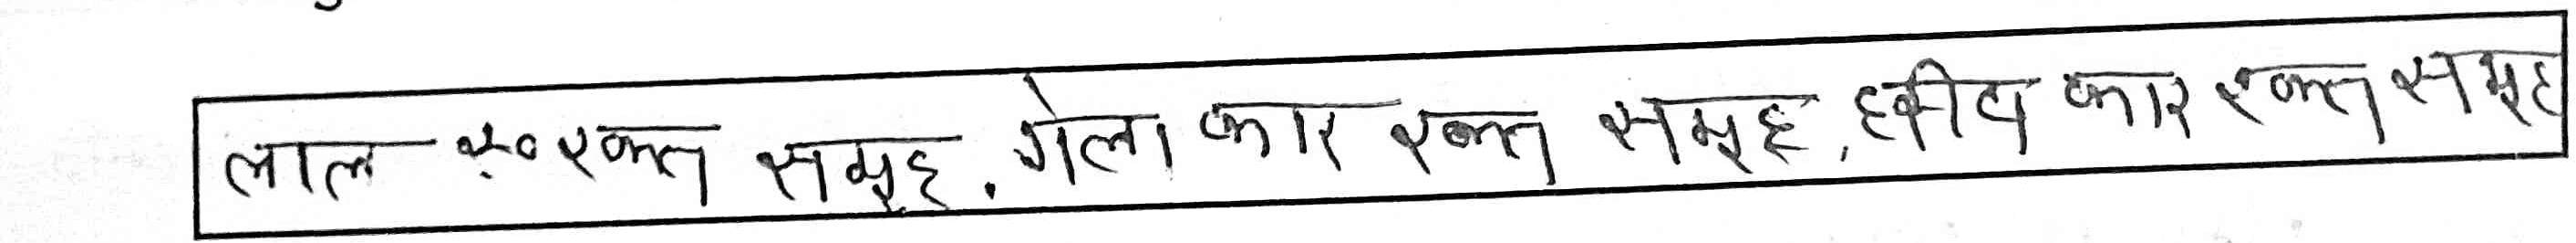 लाल रक्त समूह, गोला कार रक्त समूह, कार रक्त समूह